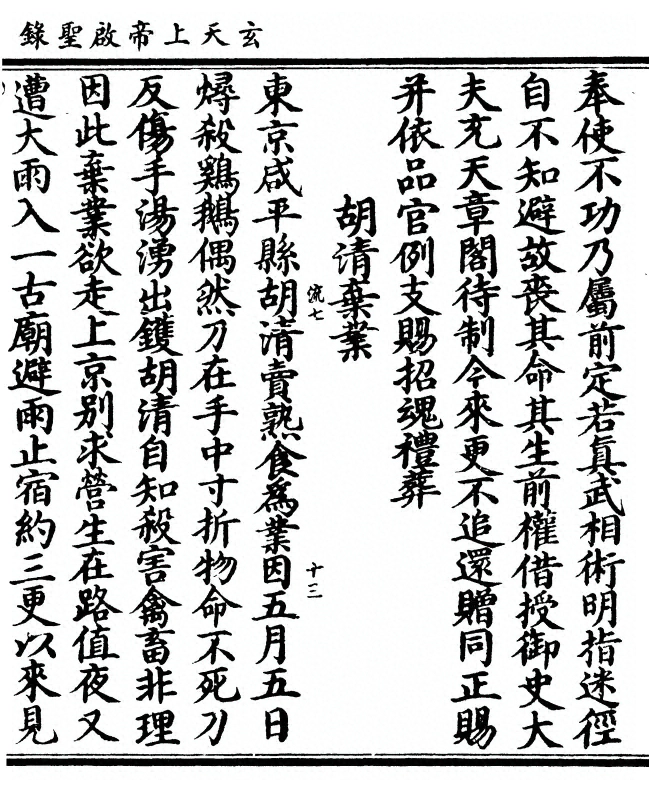 玄天上帝啟聖錄
奉使不功乃屬前定若真武相術明指迷徑
自不知避故喪其命其生前權借授御史大
夫充天章閣待制今來更不追還贈同正賜
并依品官例支賜招魂禮葬
胡清棄業
流七
十三
東京咸平縣胡清賣熟食為業因五月五日
燖殺鷄鵝偶然刀在手中寸折物命不死刀
反傷手湯湧出鑊胡清自知殺害禽畜非理
因此棄業欲走上京別求營生在路值夜又
遭大雨入一古廟避雨止宿約三更以來見